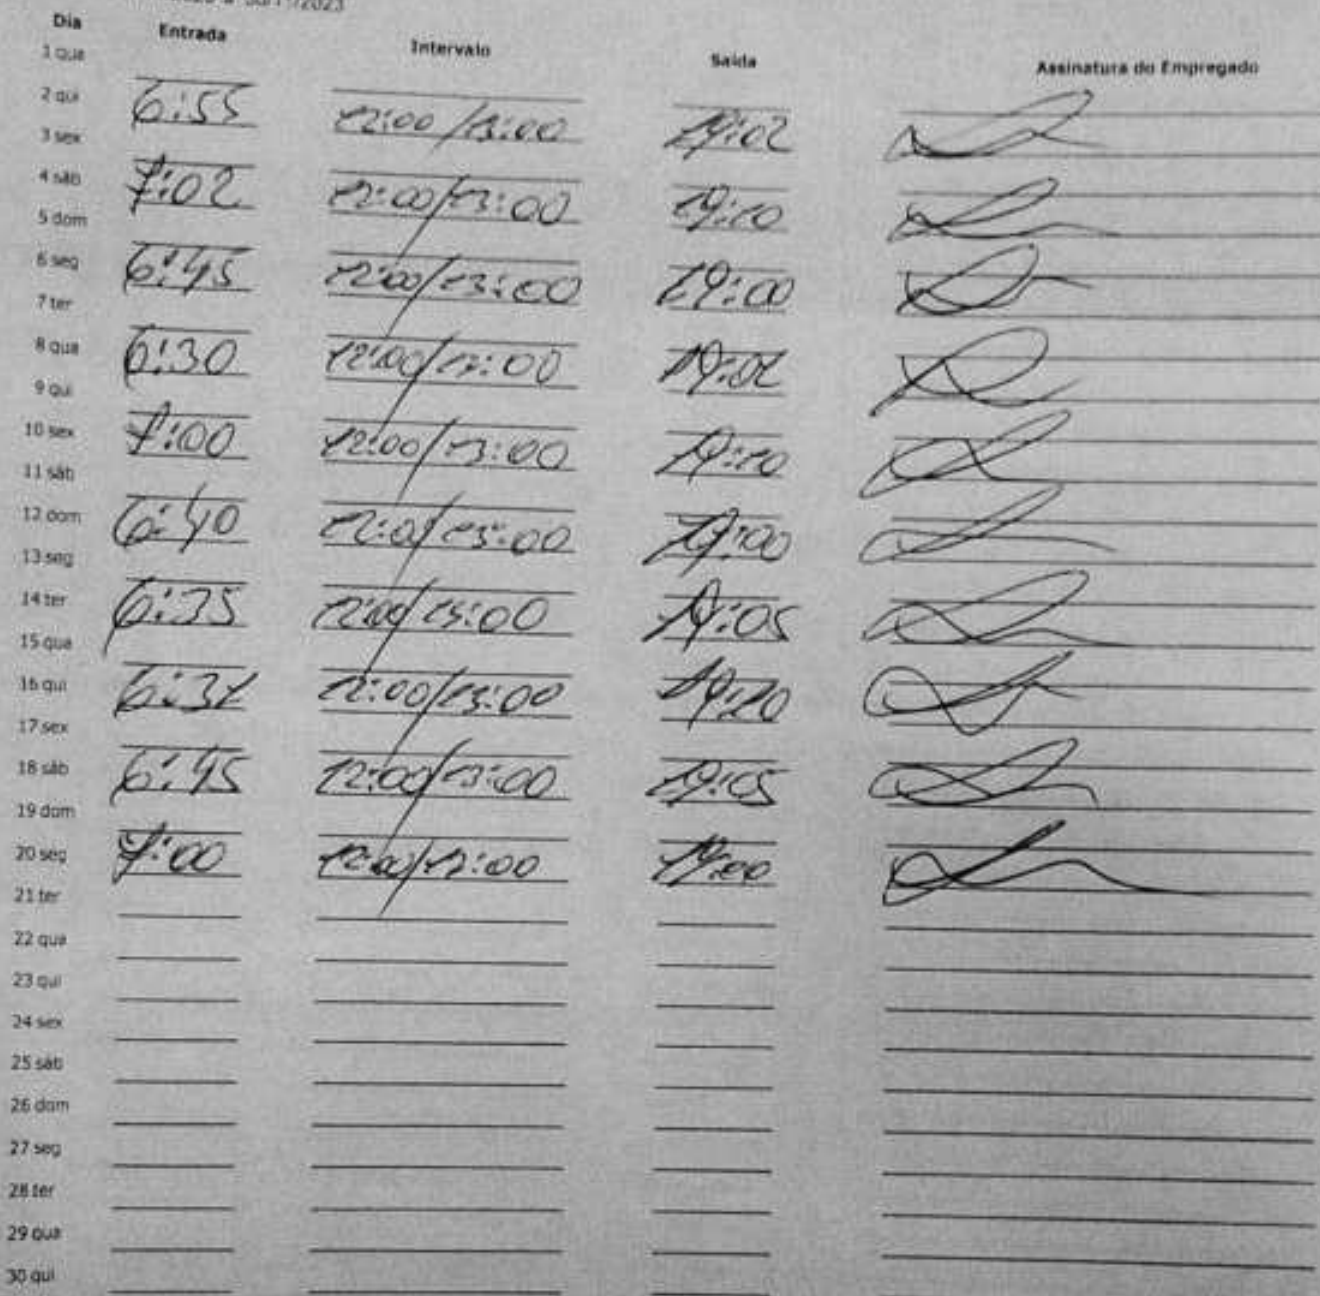 a 30/11/2023
Dia Entrada Intervalo Saída Assinatura do Empregado
1 qua
2 qui 6:55 12:00/13:00 19:02
3 sex
4 sáb 7:02 12:00/13:00 19:10
5 dom
6 seg 6:45 12:00/13:00 19:00
7 ter
8 qua 6:30 12:00/13:00 19:02
9 qui
10 sex 7:00 12:00/13:00 19:10
11 sáb
12 dom 6:40 12:0/13:00 19:00
13 seg
14 ter 6:35 12:00/13:00 19:05
15 qua
16 qui 6:31 12:00/13:00 19:20
17 sex
18 sáb 6:45 12:00/13:00 19:05
19 dom
20 seg 7:00 12:00/13:00 19:00
21 ter
22 qua
23 qui
24 sex
25 sáb
26 dom
27 seg
28 ter
29 qua
30 qui